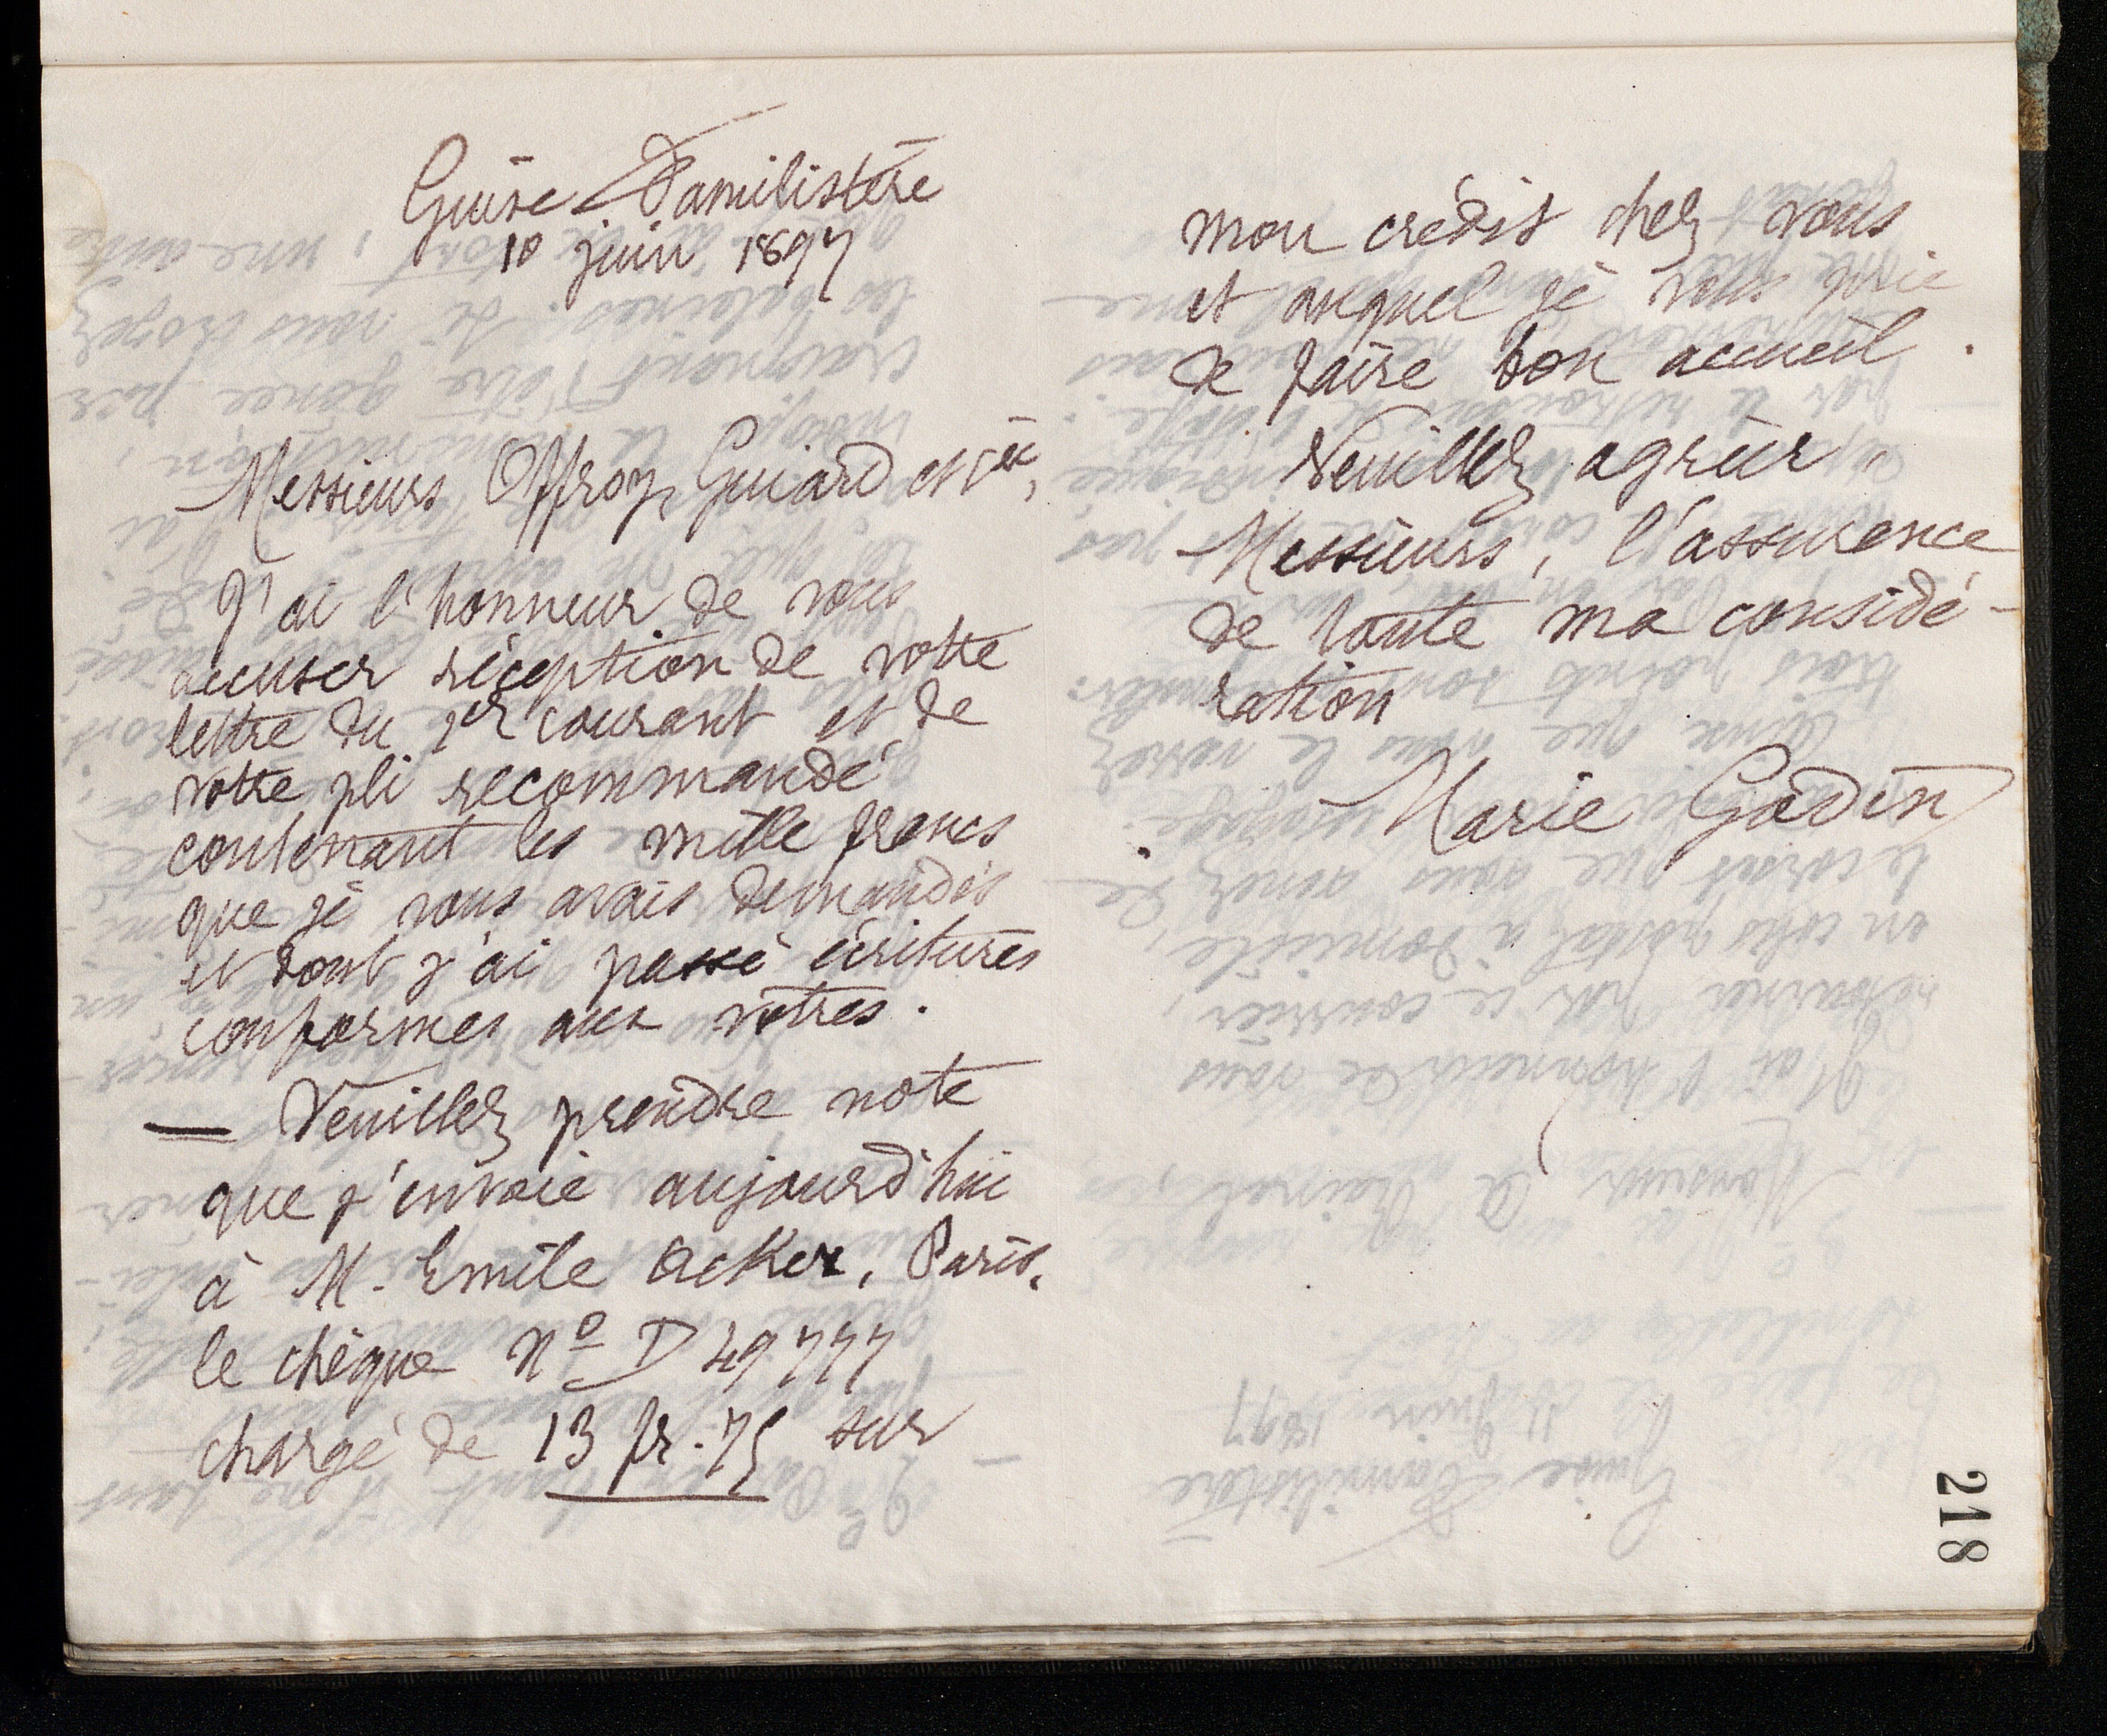 Guise Familistère
10 juin 1897
Messieurs Offroy, Guiard et Cie,
J'ai l'honneur de vous
accuser réception de votre
lettre du 1er courant et de
votre pli recommandé
contenant les mille francs
que je vous avais demandés
et dont j'ai passé écritures
conformes aux vôtres.
— Veuillez prendre note
que j'envoie aujourd'hui
à M. Emile Acker, Paris,
le chèque No D 49777
chargé de 13 fr. 75 sur
mon crédit chez vous
et auquel je vous prie
de faire bon accueil.
Veuillez agréer,
Messieurs, l'assurance
de toute ma considé-
ration
Marie Godin
218